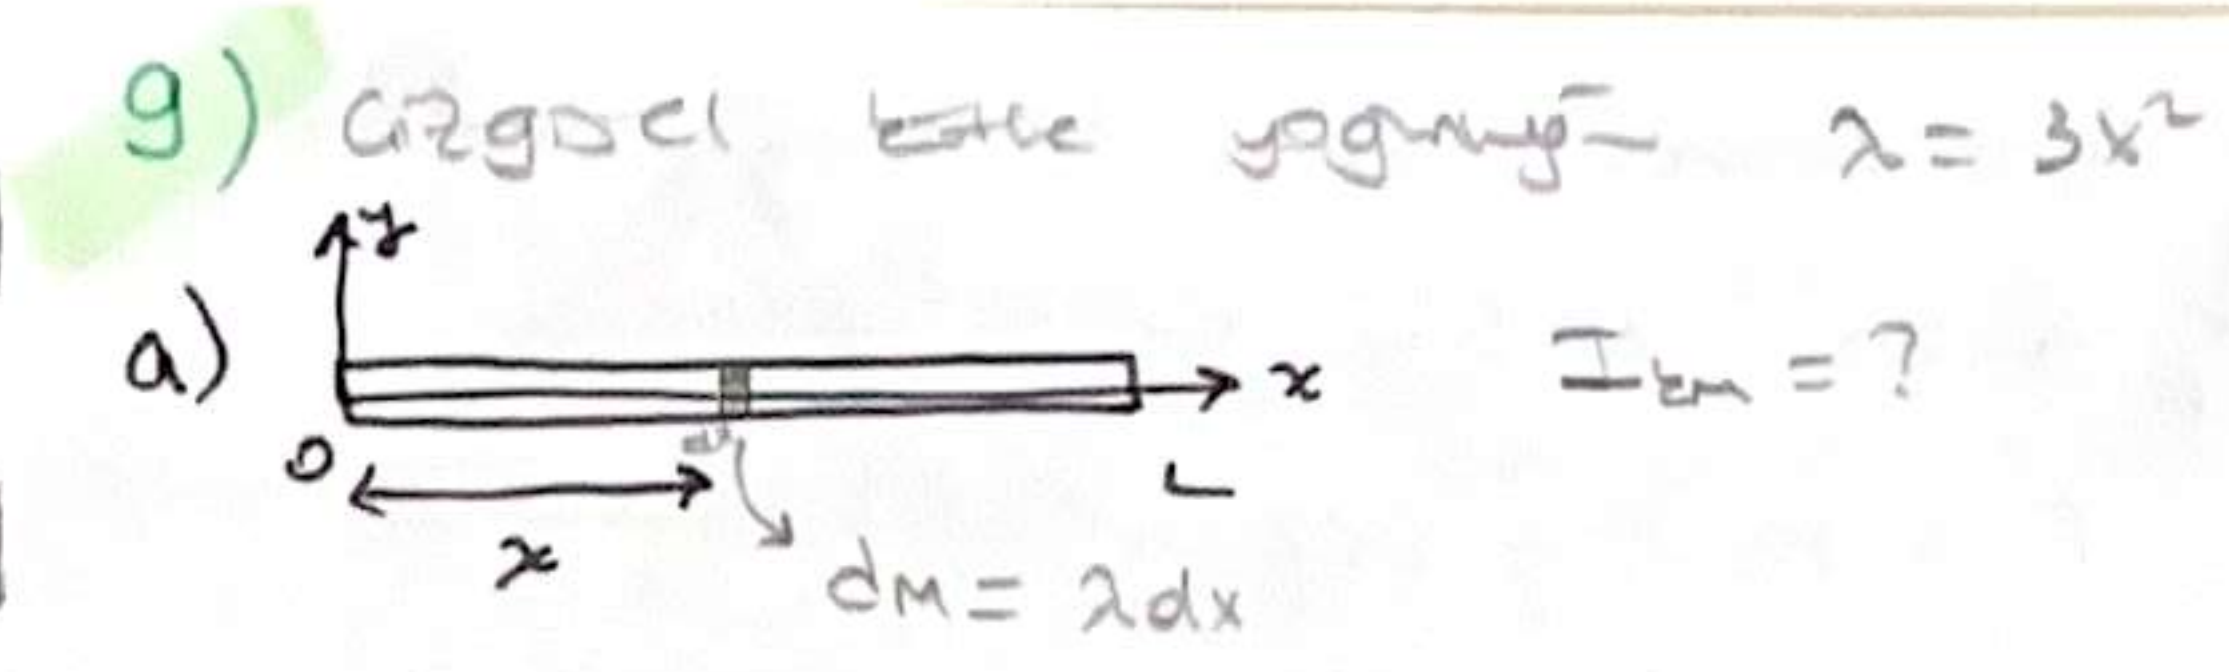 9) Çizgisel kütle yoğunluğu λ = 3x²
y
a)
x
I_km = ?
0
dx
L
x
dm = λdx